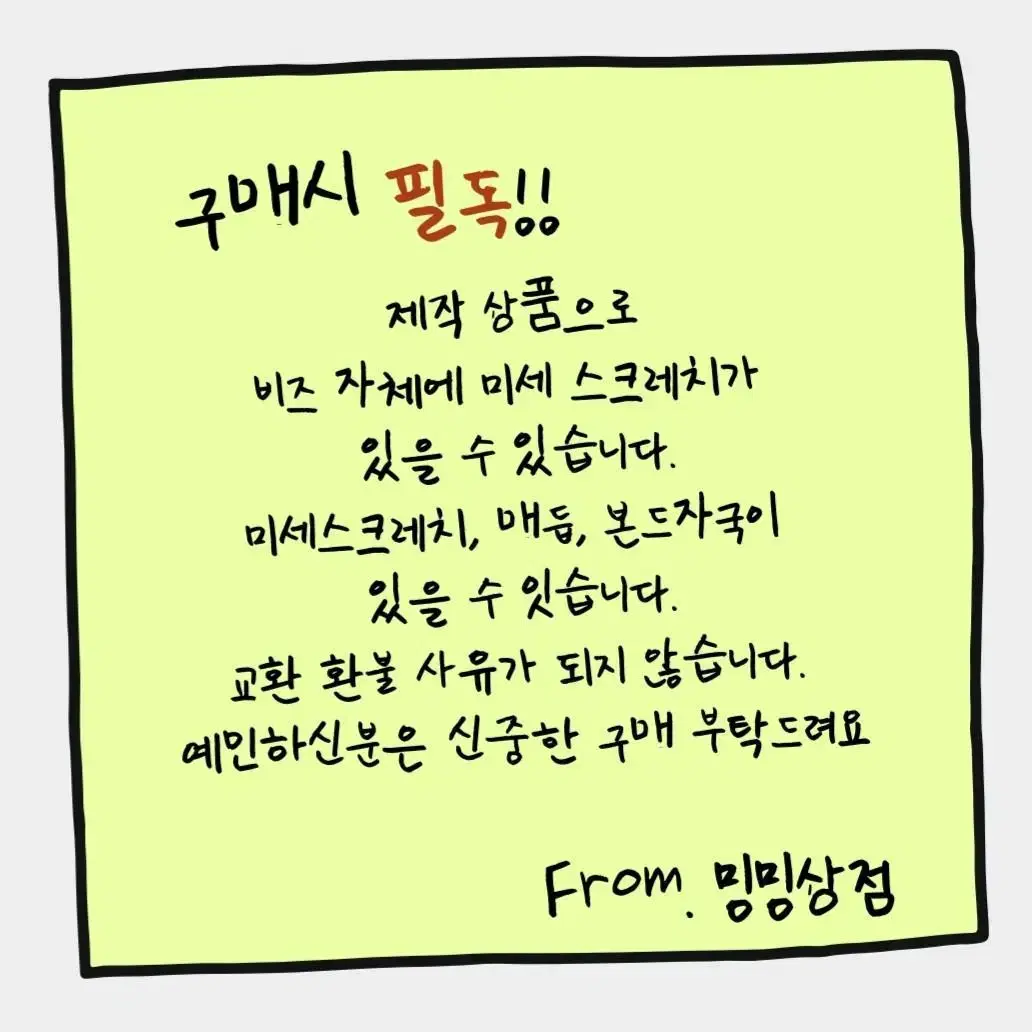 구매시 필독!!
제작 상품으로
비즈 자체에 미세 스크레치가
있을 수 있습니다.
미세스크레치, 매듭, 본드자국이
있을 수 잇습니다.
교환 환불 사유가 되지 않습니다.
예민하신분은 신중한 구매 부탁드려요
From. 밍밍상점